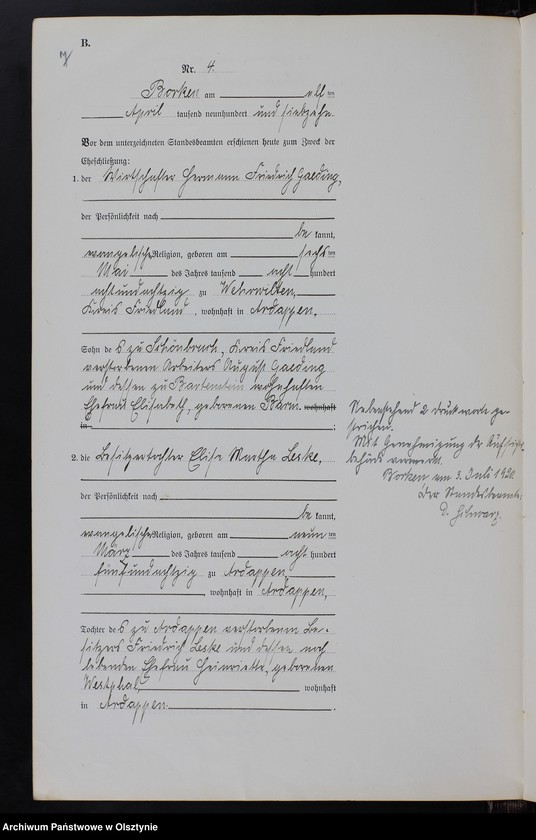 B.
Nr. 4.
Borken am elf ten
April tausend neunhundert und siebzehn.
Vor dem unterzeichneten Standesbeamten erschienen heute zum Zweck der
Eheschließung:
1. der Wirtschafter Hermann Friedrich Gaeding,
der Persönlichkeit nach
be kannt,
evangelischer Religion, geboren am sechs ten
Mai des Jahres tausend acht hundert
achtundachtzig zu Wehrwilten,
Kreis Friedland, wohnhaft in Ardappen.
Sohn des zu Schönbruch, Kreis Friedland
verstorbenen Arbeiters August Gaeding
und dessen zu Bartenstein wohnhaften
Ehefrau Elisabeth, geborenen Barm. wohnhaft
in :
2. die Besitzertochter Elise Martha Leske,
der Persönlichkeit nach
be kannt,
evangelischer Religion, geboren am neun ten
März des Jahres tausend acht hundert
fünfundachtzig zu Ardappen,
, wohnhaft in Ardappen,
Tochter des zu Ardappen verstorbenen Be-
sitzers Friedrich Leske und dessen noch
lebenden Ehefrau Heinriette, geborenen
Westphal, wohnhaft
in Ardappen.
Nebenstehend 2 Druckworte ge-
strichen.
Mit Genehmigung der Aufsichts-
behörde vermerkt.
Borken am 3. Juli 1920.
Der Standesbeamte.
Archiwum Państwowe w Olsztynie